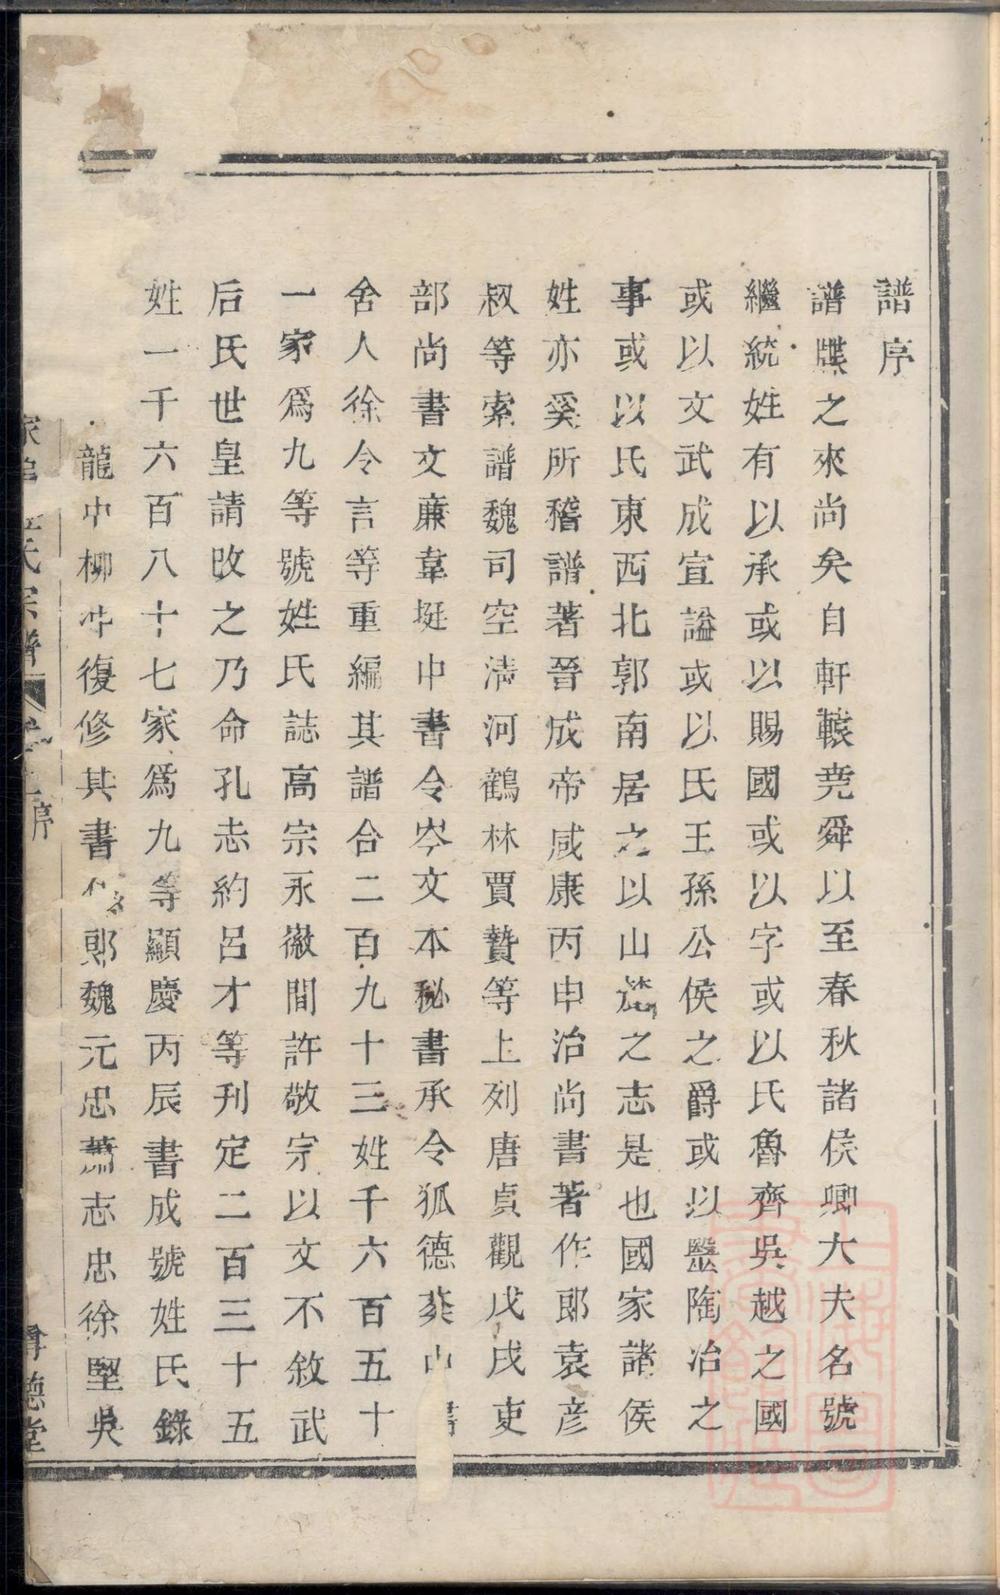 譜序
譜牒之來尚矣自軒轅堯舜以至春秋諸侯卿大夫名號
繼統姓有以承或以賜國或以字或以氏魯齊吳越之國
或以文武成宣謚或以氏王孫公侯之爵或以壂陶冶之
事或以氏東西北郭南居之以山之志是也國家諸侯
姓亦奚所稽譜著晉成帝咸康丙申治尚書著作郎袁彥
叔等索譜魏司空淸河鶴林賈贊等上列唐貞觀戊戌吏
部尚書文廉韋挺中書令岑文本秘書承令狐德棻書
舍人徐令言等重編其譜合二百九十三姓千六百五十
一家爲九等號姓氏誌高宗永徽間許敬宗以文不敘武
后氏世皇請改之乃命孔志約呂才等刊定二百三十五
姓一千六百八十七家爲九等顯慶丙辰書成號姓氏錄
龍中柳冲復修其書郞魏元忠蕭志忠徐堅吳
氏宗譜 序 德堂